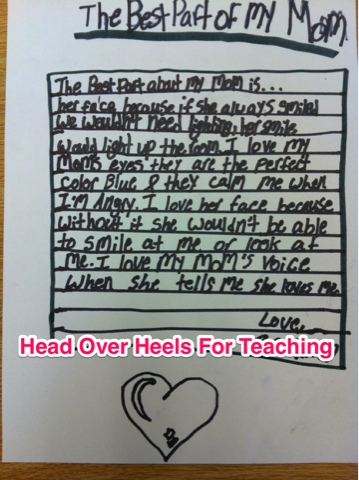 The Best Part of my Mom
The Best Part about my Mom is...
her face because if she always smiled
we wouldn't need lighting, her smile
would light up the room. I love my
Mom's eyes they are the perfect
color Blue & they calm me when
I'm Angry. I love her face because
without it she wouldn't be able
to smile at me or look at
me. I love my mom's voice
when she tells me she loves me.
Love,
Head Over Heels For Teaching